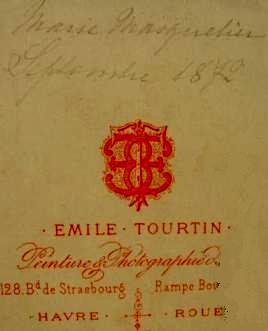 Marie Masquelier
Septembre 1872
· EMILE · TOURTIN ·
Peinture & Photographie
128. Bd de Strasbourg Rampe Bou
· HAVRE · ROUE